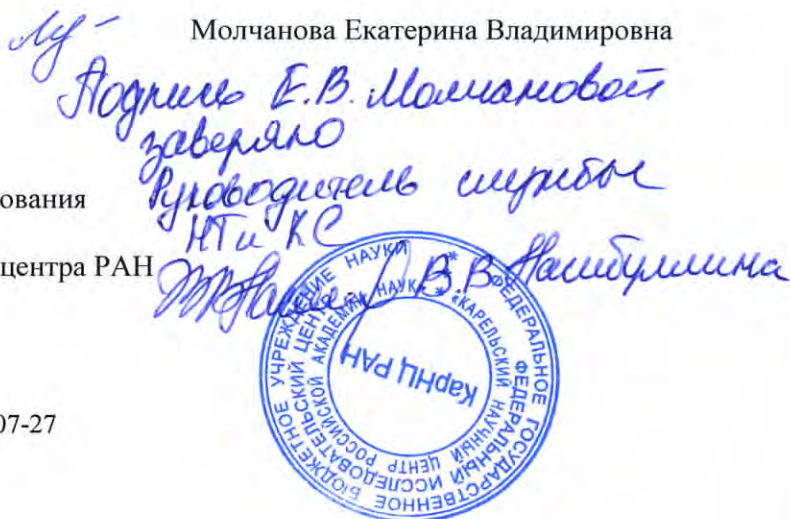 Молчанова Екатерина Владимировна
Подпись Е.В. Молчановой
заверяю
Руководитель службы
НТиКС
ования
центра РАН
В.В.
07-27
ФЕДЕРАЛЬНОЕ ГОСУДАРСТВЕННОЕ БЮДЖЕТНОЕ УЧРЕЖДЕНИЕ НАУКИ
ФЕДЕРАЛЬНЫЙ ИССЛЕДОВАТЕЛЬСКИЙ ЦЕНТР
«КАРЕЛЬСКИЙ НАУЧНЫЙ ЦЕНТР РОССИЙСКОЙ АКАДЕМИИ НАУК»
КарНЦ РАН